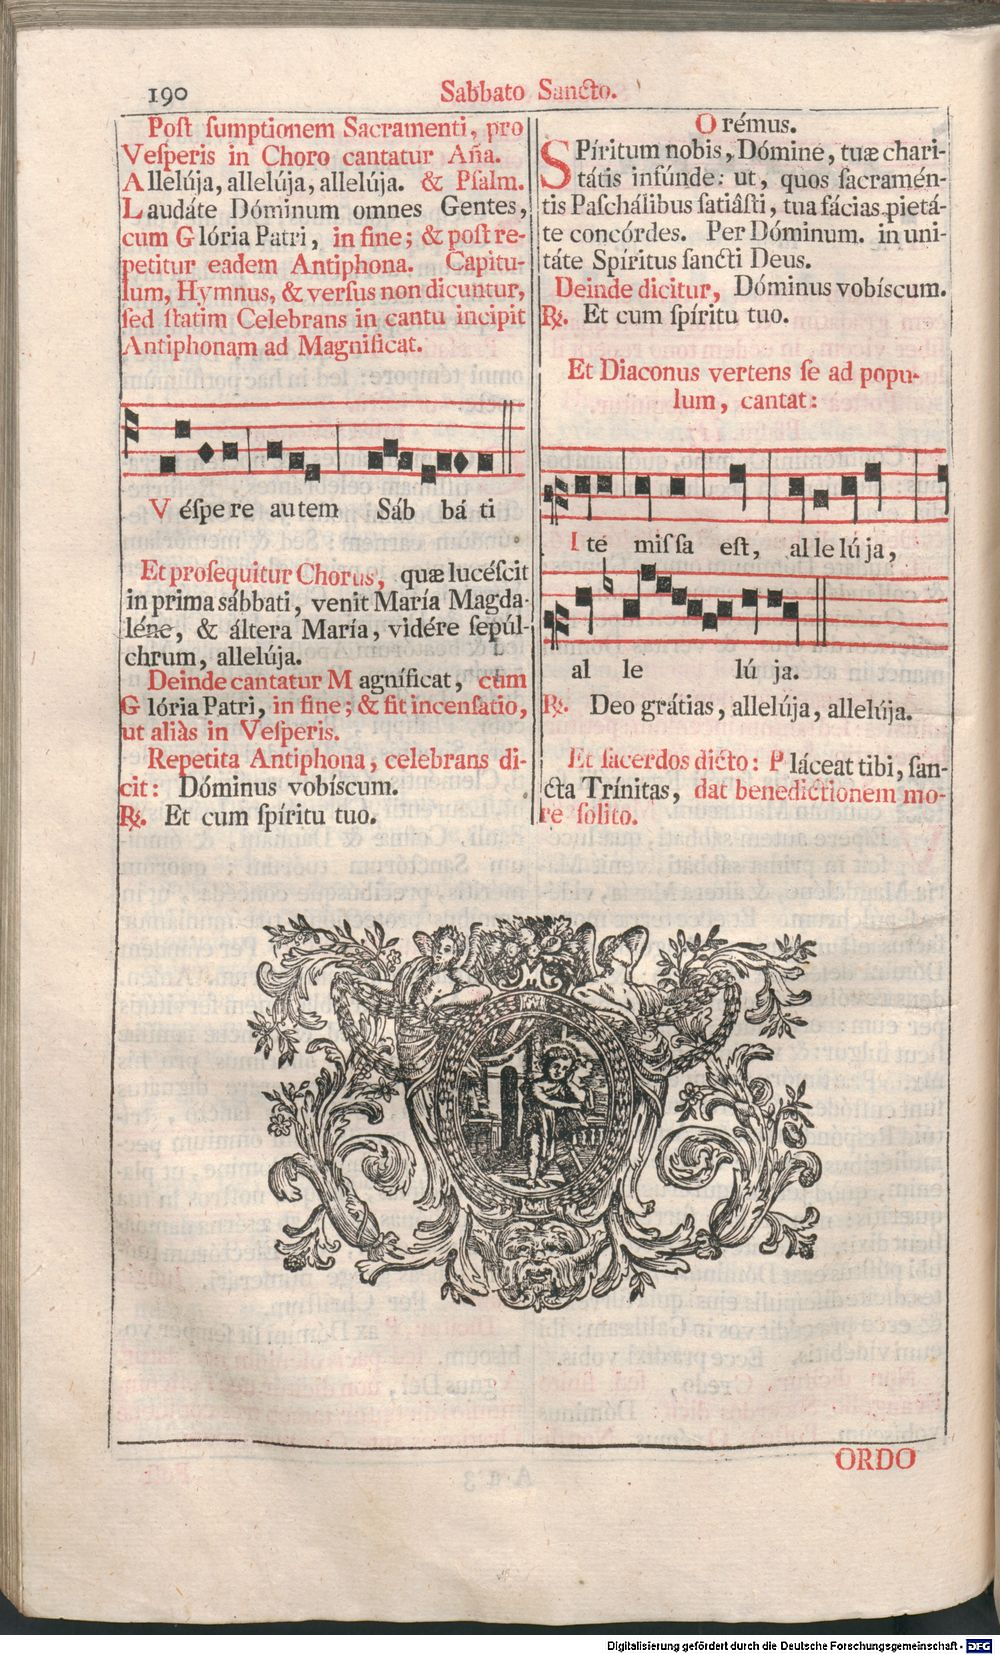 190
Sabbato Sancto.
Poſt ſumptionem Sacramenti, pro
Veſperis in Choro cantatur Aña.
Allelúja, allelúja, allelúja. & Pſalm.
Laudáte Dóminum omnes Gentes,
cum Glória Patri, in fine; & poſt re-
petitur eadem Antiphona. Capitu-
lum, Hymnus, & verſus non dicuntur,
ſed ſtatim Celebrans in cantu incipit
Antiphonam ad Magnificat.
V éſpe re au tem Sáb bá ti
Et proſequitur Chorus, quæ lucéſcit
in prima sábbati, venit María Magda-
léne, & áltera María, vidére ſepúl-
chrum, allelúja.
Deinde cantatur Magníficat, cum
Glória Patri, in fine; & fit incenſatio,
ut aliàs in Veſperis.
Repetita Antiphona, celebrans di-
cit: Dóminus vobíscum.
℟. Et cum ſpíritu tuo.
Orémus.
SPíritum nobis, Dómine, tuæ chari-
tátis infúnde: ut, quos ſacramén-
tis Paſchálibus ſatiâſti, tua fácias pietá-
te concórdes. Per Dóminum. in uni-
táte Spíritus ſancti Deus.
Deinde dicitur, Dóminus vobíscum.
℟. Et cum ſpíritu tuo.
Et Diaconus vertens ſe ad popu-
lum, cantat:
I te miſ ſa eſt, al le lú ja,
al le lú ja.
℟. Deo grátias, allelúja, allelúja.
Et ſacerdos dicto: Pláceat tibi, ſan-
cta Trínitas, dat benedictionem mo-
re ſolito.
ORDO
Digitalisierung gefördert durch die Deutsche Forschungsgemeinschaft - DFG